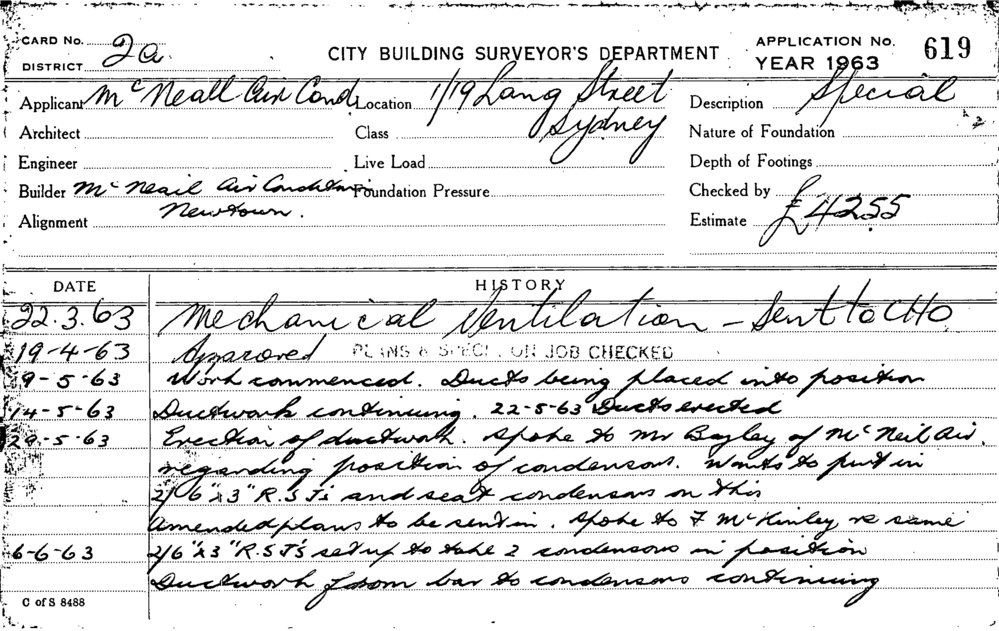 CARD No. 2a.
DISTRICT
CITY BUILDING SURVEYOR'S DEPARTMENT
APPLICATION No. 619
YEAR 1963
Applicant McNeall Air Cond Location 1/19 Lang Street Description Special
Architect Class Sydney Nature of Foundation
Engineer Live Load Depth of Footings
Builder Mc Neail Air Foundation Pressure Checked by
Alignment Newtown. Estimate £4255
DATE HISTORY
22.3.63 Mechanical Ventilation - Sent to CHO
19-4-63 Approved PLANS & SPECI. ON JOB CHECKED
9-5-63 Work commenced. Ducts being placed into position
14-5-63 Ductwork continuing. 22-5-63 Ducts erected
29-5-63 Erection of ductwork. Spoke to Mr Bagley of McNeil Air.
regarding position of condensors. Wants to put in
2/6"x3" R.S.J's and seat condensors on this
Amended plans to be sent in. Spoke to F McKinley re same
6-6-63 2/6"x3" R.S.J's set up to take 2 condensors in position
Ductwork from bar to condensors continuing
C of S 8488